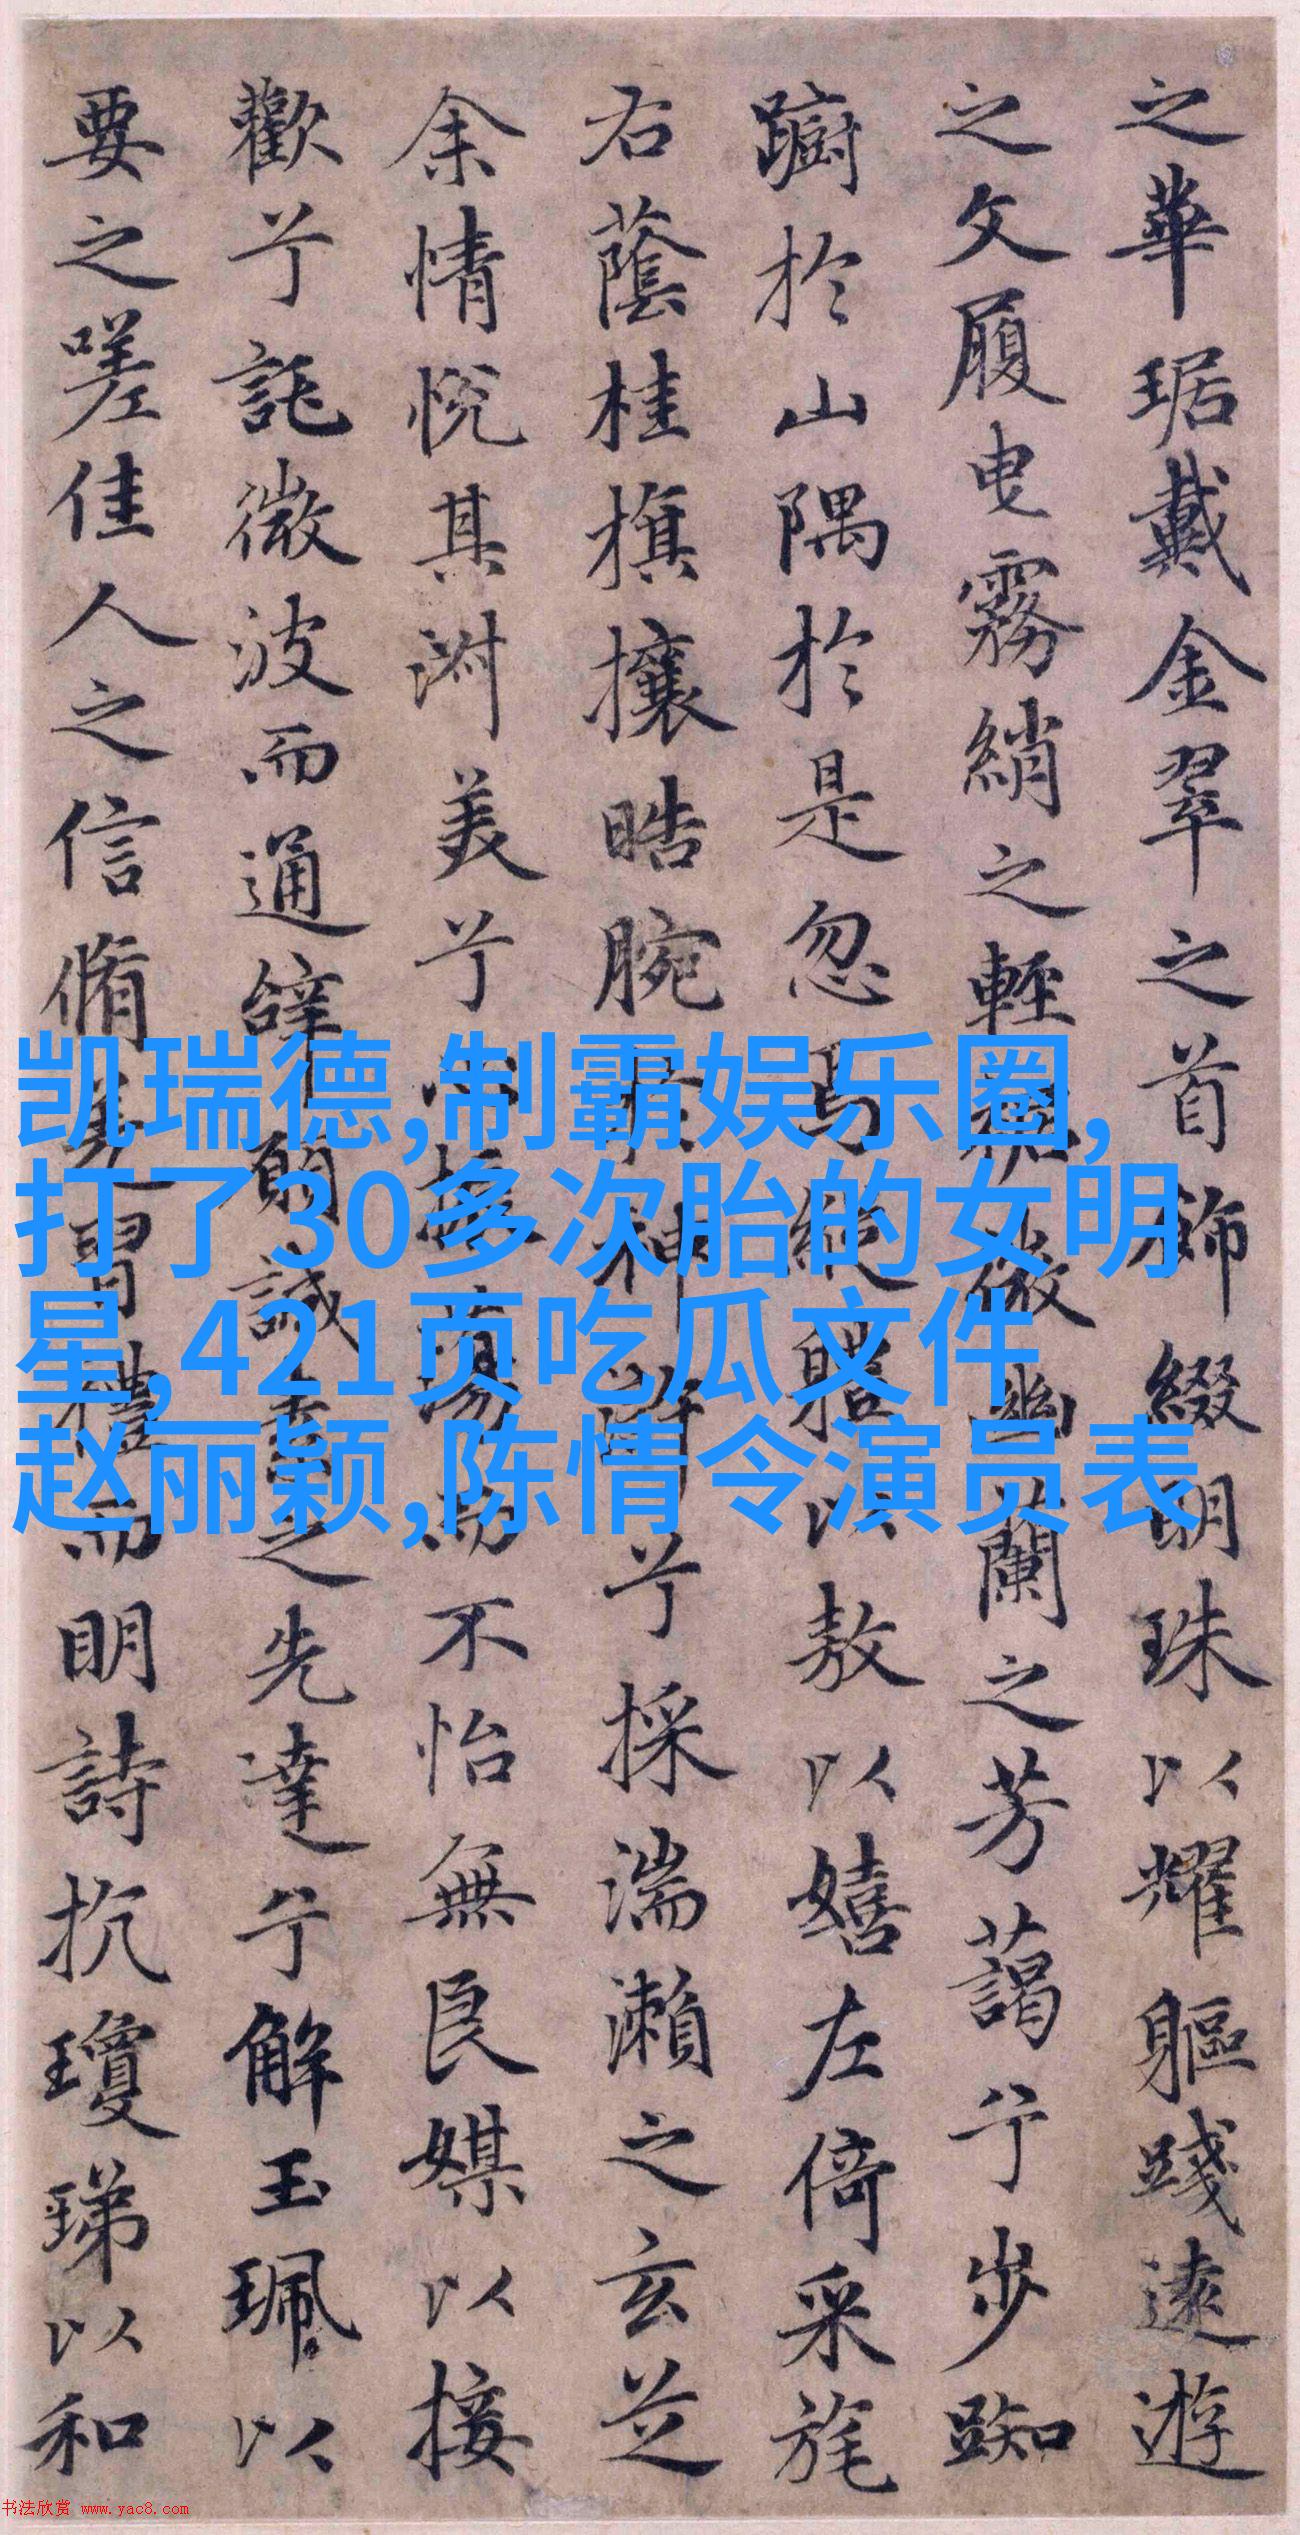 之華琚戴金翠之首飾綴明珠以耀軀踐遠遊
之文履曳霧綃之輕裾微幽蘭之芳藹兮步踟
蹰於山隅於是忽焉縱體以敖以嬉左倚采旄
右蔭桂旗攘晧腕於神滸兮採湍瀨之玄芝
余情悅其淑美兮心振蕩而不怡無良媒以接
歡兮託微波而通辭願誠素之先達兮解玉珮以
要之嗟佳人之信脩羌習禮而明詩抗瓊珶以和
凯瑞德,制霸娱乐圈,
打了30多次胎的女明
星,421页吃瓜文件
赵丽颖,陈情令演员表
书法欣赏 www.yac8.com